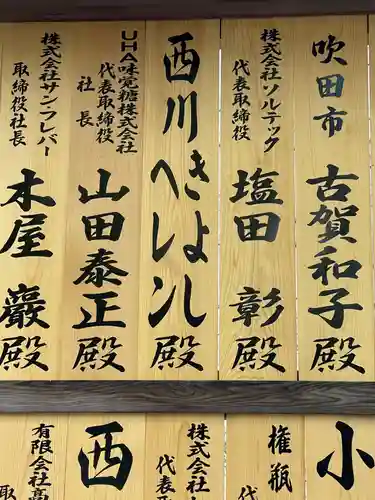 吹田市
古賀和子殿
株式会社ソルテック
代表取締役
塩田 彰殿
西川
きよし
ヘレン
殿
UHA味覚糖株式会社
代表取締役
社長
山田泰正殿
株式会社サンフレバー
取締役社長
木屋 巖殿
小
権瓶
代
株式会社
代表
西
有限会社
取